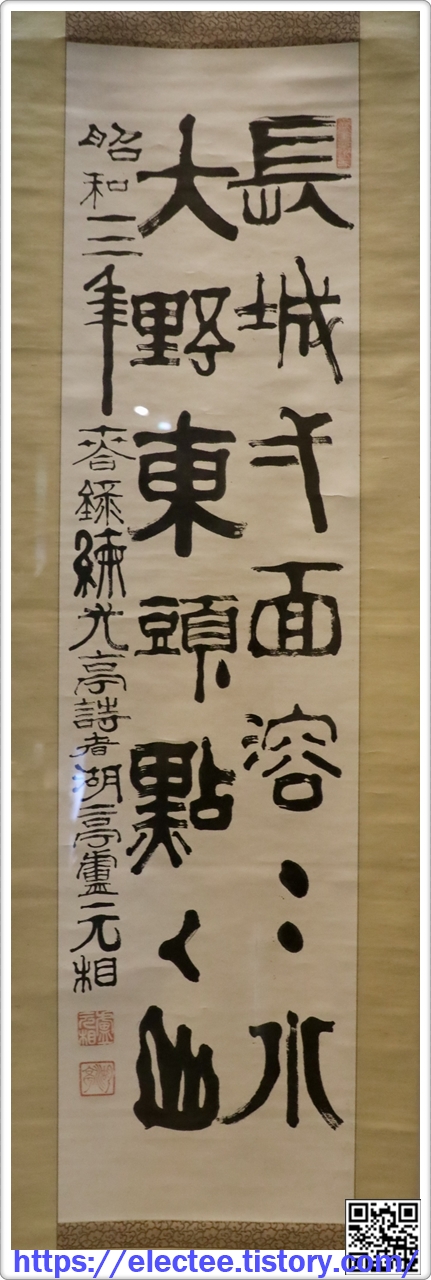 長城弌面溶々水
大野東頭點々山
昭和三年春錄練光亭詩者湖亭盧元相
https://electee.tistory.com/